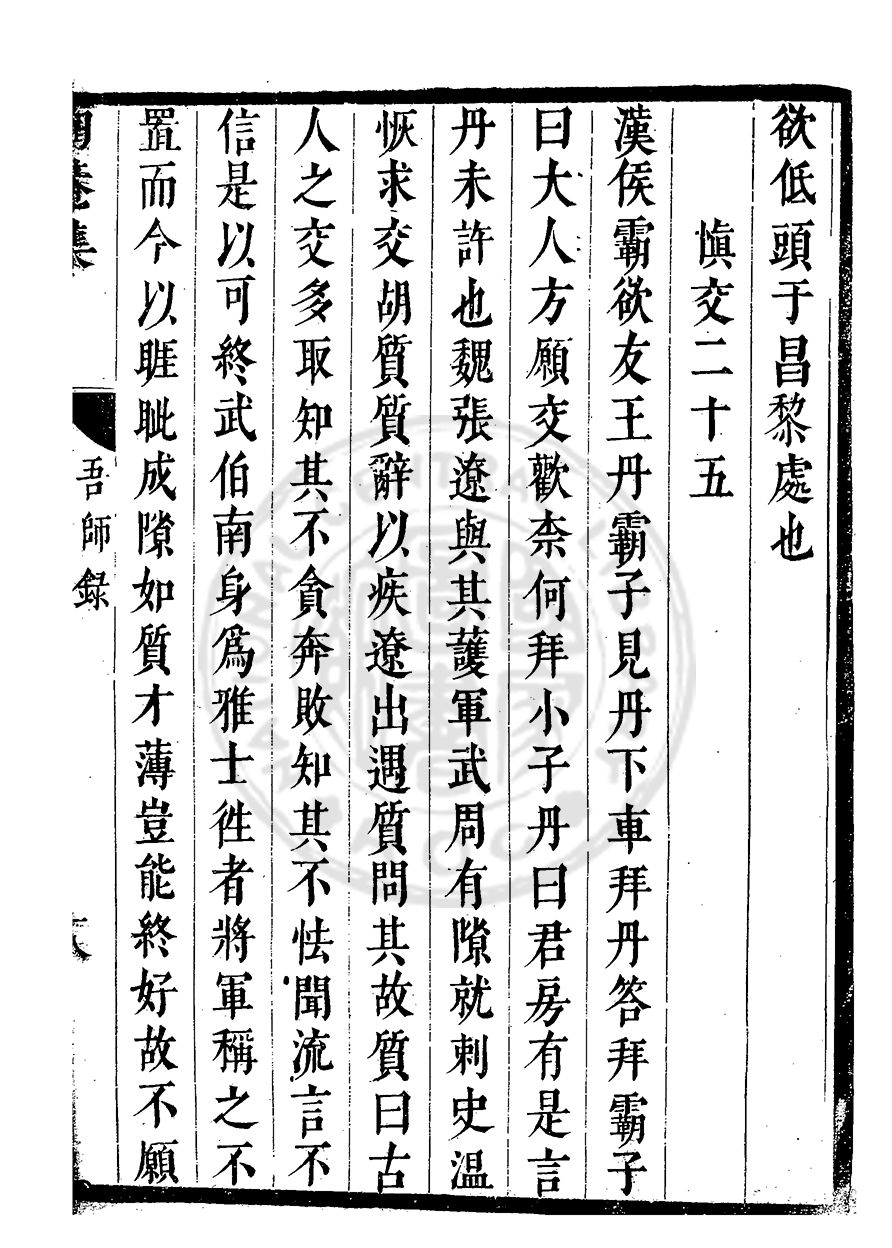 欲低頭于昌黎處也
慎交二十五
漢侯霸欲友王丹霸子見丹下車拜丹答拜霸子
曰大人方願交歡柰何拜小子丹曰君房有是言
丹未許也魏張遼與其護軍武周有隙就刺史溫
恢求交胡質質辭以疾遼出遇質問其故質曰古
人之交多取知其不貪奔敗知其不怯聞流言不
信是以可終武伯南身爲雅士徃者將軍稱之不
置而今以睚眦成隙如質才薄豈能終好故不願
集
吾師録